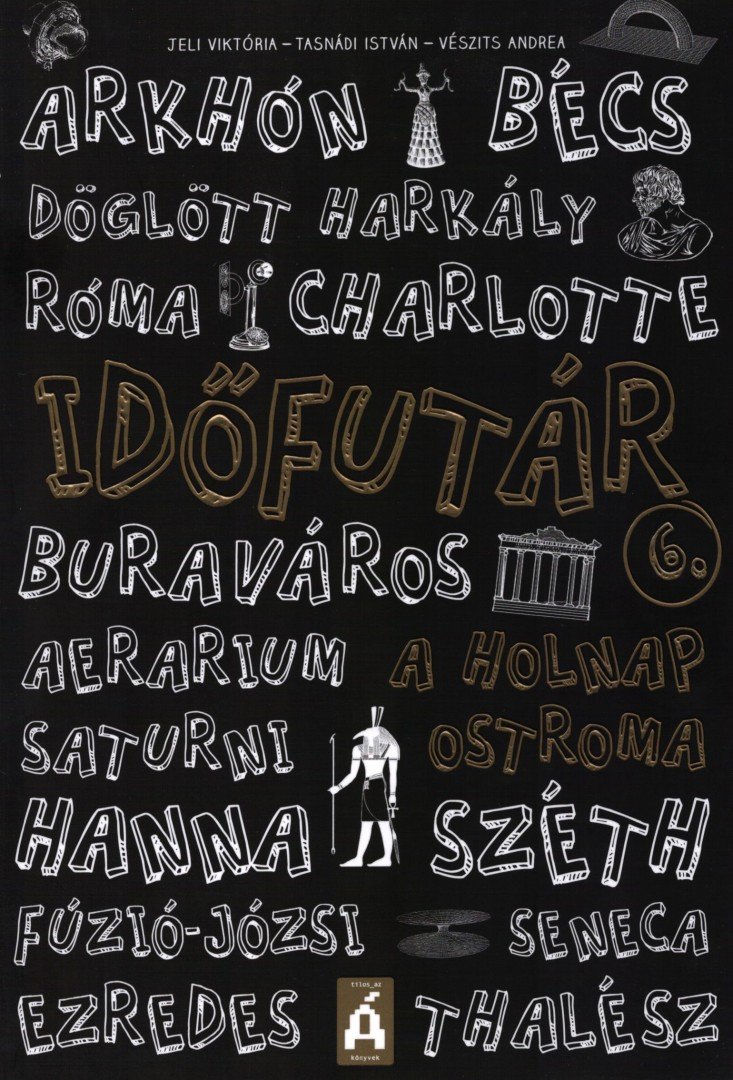 JELI VIKTÓRIA – TASNÁDI ISTVÁN – VÉSZITS ANDREA
ARKHÓN BÉCS
DÖGLÖTT HARKÁLY
RÓMA CHARLOTTE
IDŐFUTÁR
6.
BURAVÁROS
AERARIUM A HOLNAP
SATURNI OSTROMA
HANNA SZÉTH
FÚZIÓ-JÓZSI SENECA
EZREDES THALÉSZ
tilos_az
Á
könyvek